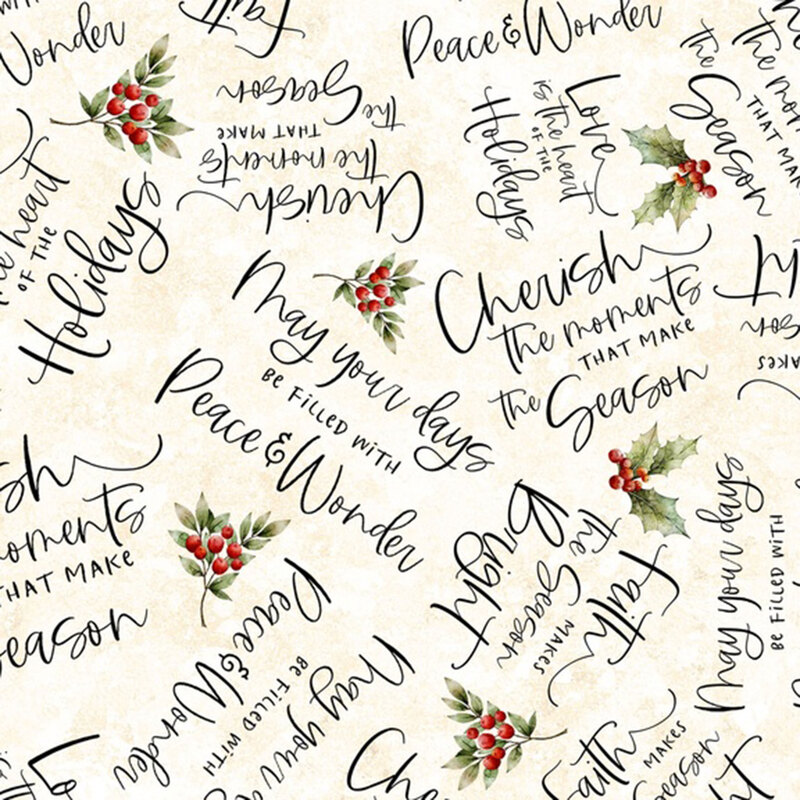 Wonder
Faith
Peace & Wonder
the
Season
the moments
THAT MAKE
Cherish
the moments
THAT MAKE
the Season
Love
is the heart
OF THE
Holidays
the moments
THAT MAKE
the
Season
the heart
OF THE
Holidays
May your days
BE FILLED WITH
Peace & Wonder
Cherish
the moments
THAT MAKE
the Season
moments
THAT MAKE
Season
Faith
MAKES
the Season
Bright
May your days
BE FILLED WITH
May your
BE FILLED WITH
Peace & Wonder
Faith
MAKES
Season